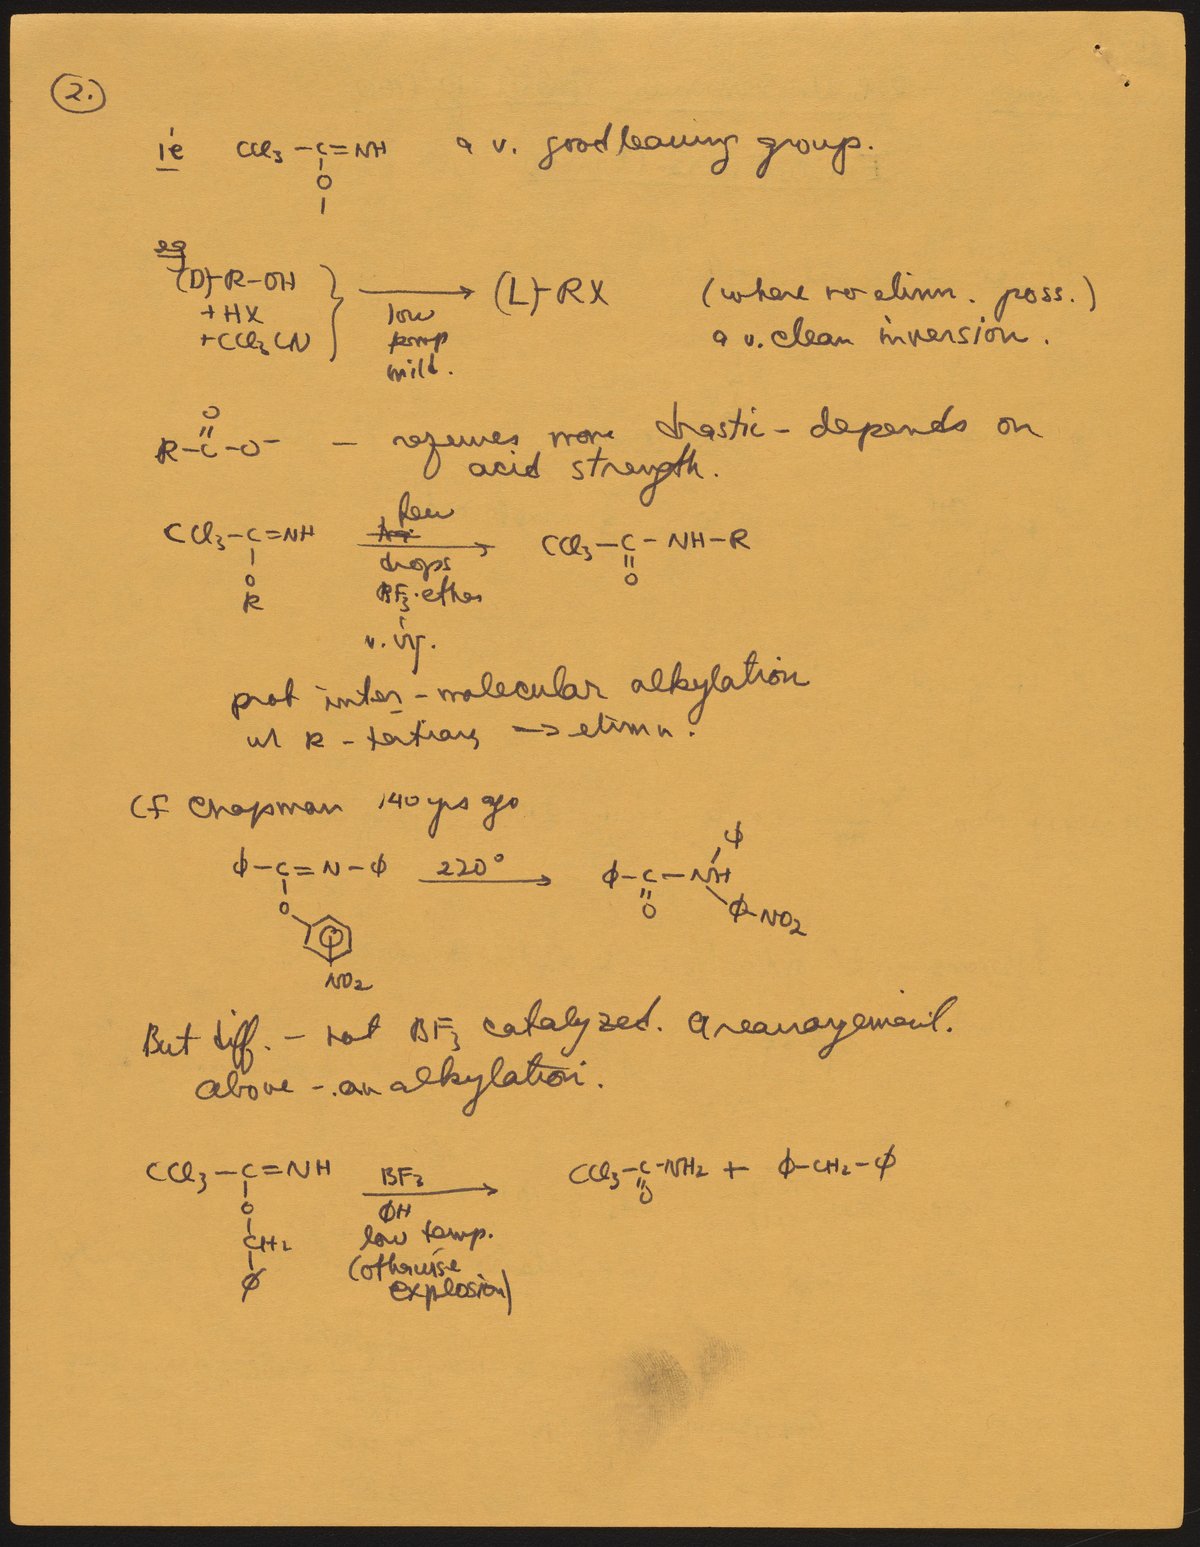 2.
ie CCl3-C=NH a v. good leaving group.
O
eg
(D)-R-OH
+HX
+CCl3CN
low
temp
mild.
(L)-RX (where no elimn. poss.)
a v. clean inversion.
O
R-C-O- - requires more drastic - depends on
acid strength.
CCl3-C=NH
O
R
few
drops
BF3·ether
v. vig.
CCl3-C-NH-R
O
prob inter-molecular alkylation
w/ R-tertiary → elimn.
Cf Chapman 140 yrs ago
ϕ-C=N-ϕ 220° ϕ-C-NH
O
NO2
ϕ
O
ϕ-NO2
But diff. - not BF3 catalyzed. A rearrangement.
above - an alkylation.
CCl3-C=NH
O
CH2
ϕ
BF3
ϕH
low temp.
(otherwise
explosion)
CCl3-C-NH2 + ϕ-CH2-ϕ
O